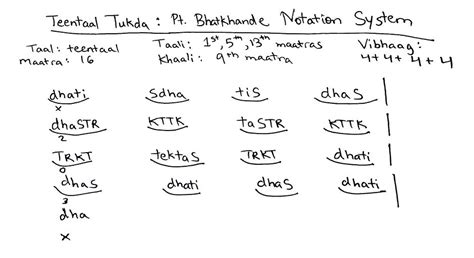 Teentaal Tukda : Pt. Bhatkhande Notation System
Taal: teentaal Taali: 1st, 5th, 13th maatras Vibhaag:
maatra: 16 Khaali: 9th maatra 4+4+4+4
dhati Sdha tiS dhaS
x
dhaSTR KTTK taSTR KTTK
2
TRKT tektaS TRKT dhati
0
dhaS dhati dhaS dhati
3
dha
x